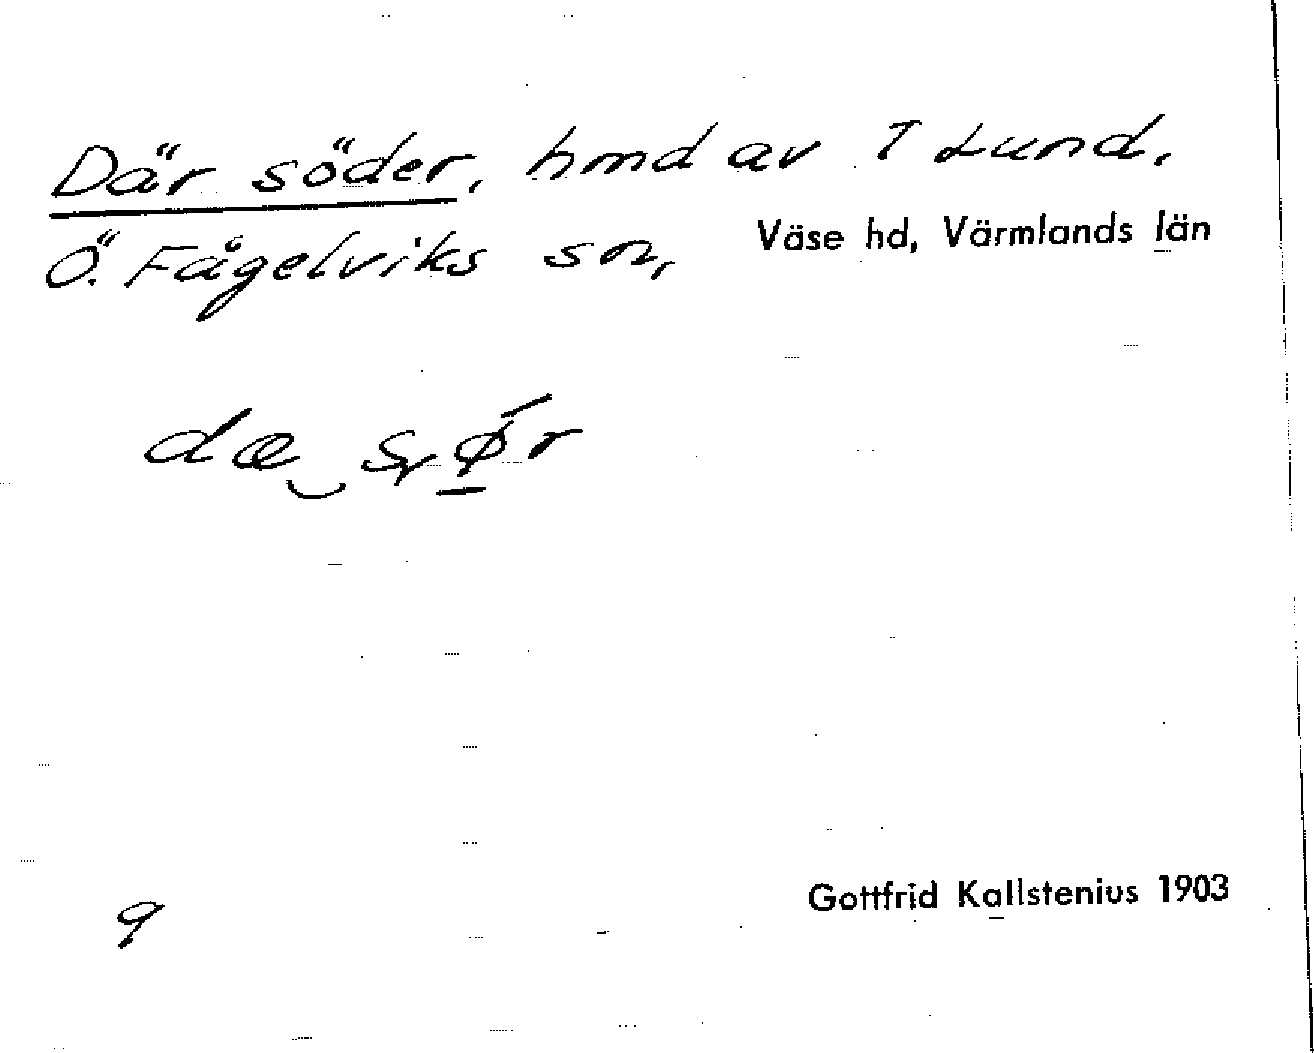 Där söder, hmd av T Lund.
Ö. Fågelviks sn, Väse hd, Värmlands län
Gottfrid Kallstenius 1903
9